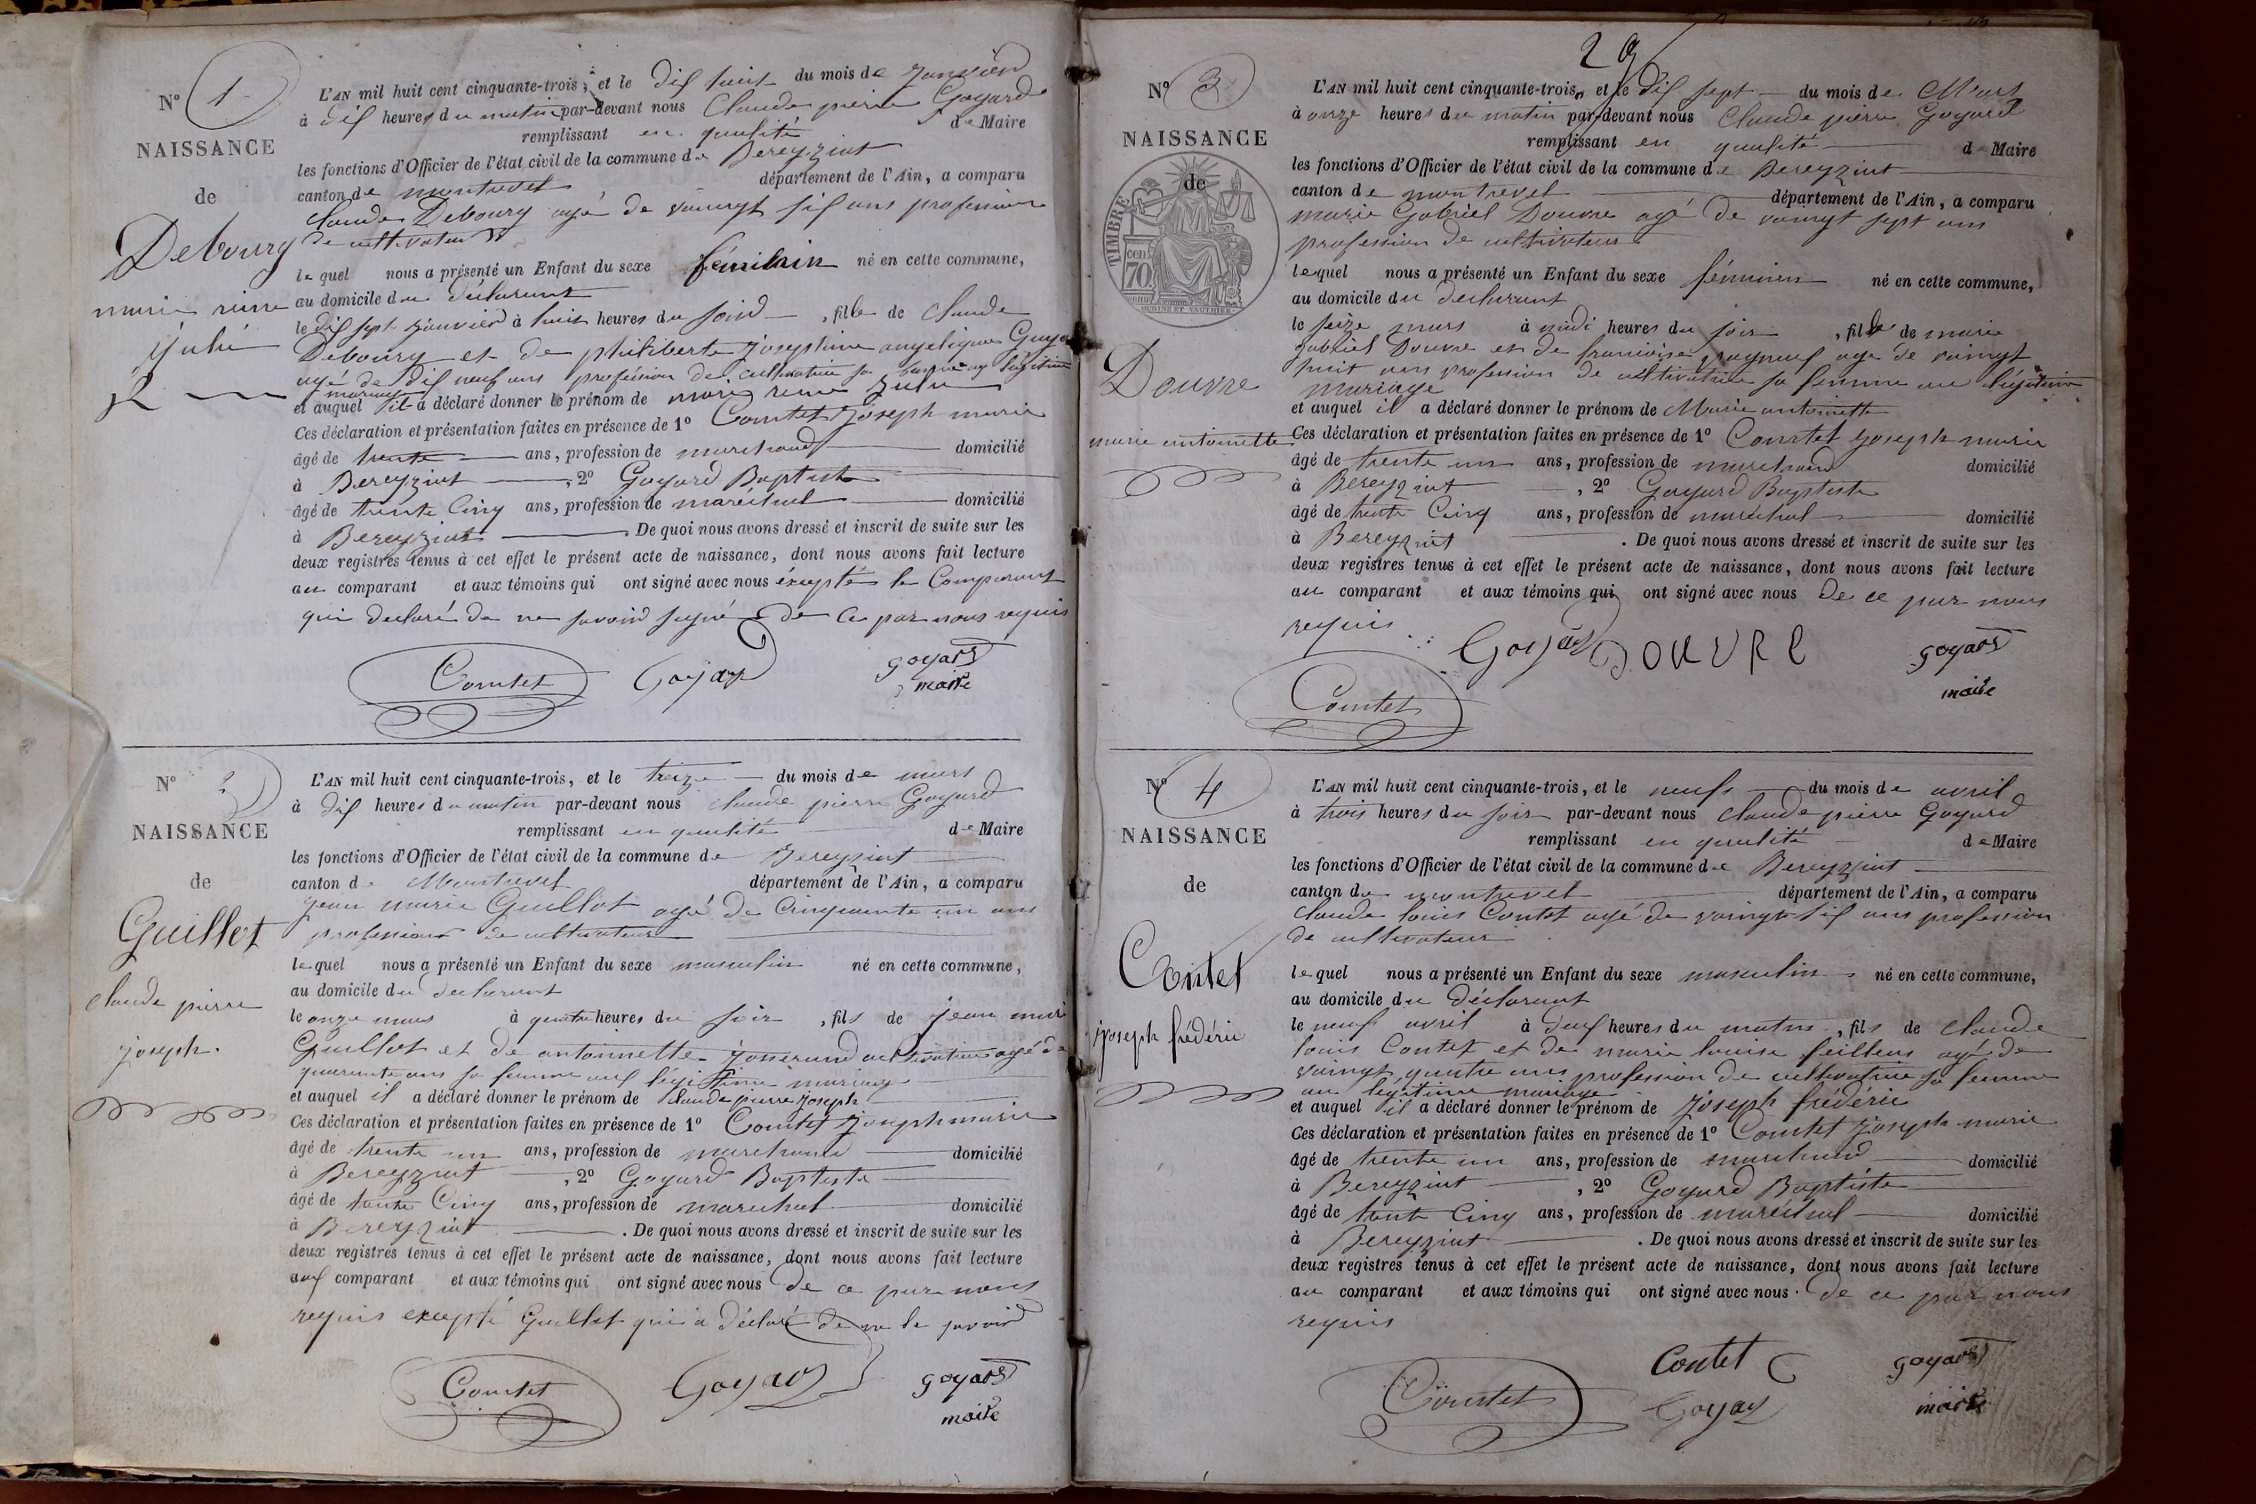 N° 1
NAISSANCE
de
Debourg
marie reine
Julie
L'AN mil huit cent cinquante-trois, et le dix huit du mois de Janvier
à dix heures du matin par-devant nous Claude pierre Goyard
remplissant en qualité de Maire
les fonctions d'Officier de l'état civil de la commune de Bereyziat
canton de montrevel département de l'Ain, a comparu
claude Debourg agé de vaingt six ans profession
de cultivateur
le quel nous a présenté un Enfant du sexe féminin né en cette commune,
au domicile du déclarant
le dix sept Janvier à huit heures du soir, fille de claude
Debourg et de philiberte Josephine angelique
agé de dix neuf ans profession de cultivatrice sa légitime
mariage
et auquel il a déclaré donner le prénom de marie reine Julie
Ces déclaration et présentation faites en présence de 1° Comtet Joseph marie
âgé de trente ans, profession de marchand domicilié
à Bereyziat, 2° Goyard Baptiste
âgé de trente Cinq ans, profession de maréchal domicilié
à Bereyziat De quoi nous avons dressé et inscrit de suite sur les
deux registres tenus à cet effet le présent acte de naissance, dont nous avons fait lecture
au comparant et aux témoins qui ont signé avec nous éxcepté le Comparant
qui declaré de ne savoir signé de ce par nous requis
Comtet Goyard goyard
maire
N° 2
NAISSANCE
de
Guillot
claude pierre
joseph.
L'AN mil huit cent cinquante-trois, et le treize du mois de mars
à dix heures du matin par-devant nous claude pierre Goyard
remplissant en qualité de Maire
les fonctions d'Officier de l'état civil de la commune de Bereyziat
canton de Montrevel département de l'Ain, a comparu
jean marie Guillot agé de Cinquante un ans
profession de cultivateur
le quel nous a présenté un Enfant du sexe masculin né en cette commune,
au domicile du declarant
le onze mars à quatre heures du soir, fils de jean marie
Guillot et de antoinette Josserand cultivatrice agé de
quarente ans sa femme légitime mariage
et auquel il a déclaré donner le prénom de claude pierre joseph
Ces déclaration et présentation faites en présence de 1° Comtet Joseph marie
âgé de trente un ans, profession de marchand domicilié
à Bereyziat, 2° Goyard Baptiste
âgé de trente Cinq ans, profession de marechal domicilié
à Bereyziat. De quoi nous avons dressé et inscrit de suite sur les
deux registres tenus à cet effet le présent acte de naissance, dont nous avons fait lecture
aux comparant et aux témoins qui ont signé avec nous de ce par nous
requis excepté Guillot qui a déclaré de ne le savoir
Comtet Goyard goyard
maire
29
N° 3
NAISSANCE
de
TIMBRE
cen
70
Douvre
marie antoinette
L'AN mil huit cent cinquante-trois, et le dix sept du mois de Mars
à onze heures du matin par-devant nous Claude pierre Goyard
remplissant en qualité de Maire
les fonctions d'Officier de l'état civil de la commune de Bereyziat
canton de montrevel département de l'Ain, a comparu
marie Gabriel Douvre agé de vaingt sept ans
profession de cultivateur
le quel nous a présenté un Enfant du sexe féminin né en cette commune,
au domicile du declarant
le seize mars à midi heures du soir, fille de marie
gabriel Douvre et de francoise agé de vaingt
huit ans profession de cultivatrice sa femme au légitime
mariage
et auquel il a déclaré donner le prénom de Marie antoinette
Ces déclaration et présentation faites en présence de 1° Comtet Joseph marie
âgé de trente un ans, profession de marchand domicilié
à Bereyziat, 2° Goyard Baptiste
âgé de trente Cinq ans, profession de maréchal domicilié
à Bereyziat. De quoi nous avons dressé et inscrit de suite sur les
deux registres tenus à cet effet le présent acte de naissance, dont nous avons fait lecture
au comparant et aux témoins qui ont signé avec nous De ce par nous
requis
Goyard DOUVRE goyard
Comtet maire
N° 4
NAISSANCE
de
Contet
joseph frédéric
L'AN mil huit cent cinquante-trois, et le neuf du mois de avril
à trois heures du soir par-devant nous claude pierre Goyard
remplissant en qualité de Maire
les fonctions d'Officier de l'état civil de la commune de Bereyziat
canton de montrevel département de l'Ain, a comparu
claude louis Contet agé de vaingt six ans profession
de cultivateur
le quel nous a présenté un Enfant du sexe masculin né en cette commune,
au domicile du déclarant
le neuf avril à deux heures du matin, fils de claude
louis Contet et de marie louise feillens agé de
vaingt quatre ans profession de cultivatrice sa femme
au legitime mariage
et auquel il a déclaré donner le prénom de Joseph frédéric
Ces déclaration et présentation faites en présence de 1° Comtet Joseph marie
âgé de trente un ans, profession de marchand domicilié
à Bereyziat, 2° Goyard Baptiste
âgé de trente Cinq ans, profession de maréchal domicilié
à Bereyziat. De quoi nous avons dressé et inscrit de suite sur les
deux registres tenus à cet effet le présent acte de naissance, dont nous avons fait lecture
au comparant et aux témoins qui ont signé avec nous. De ce par nous
requis
Contet goyard
Comtet Goyard maire